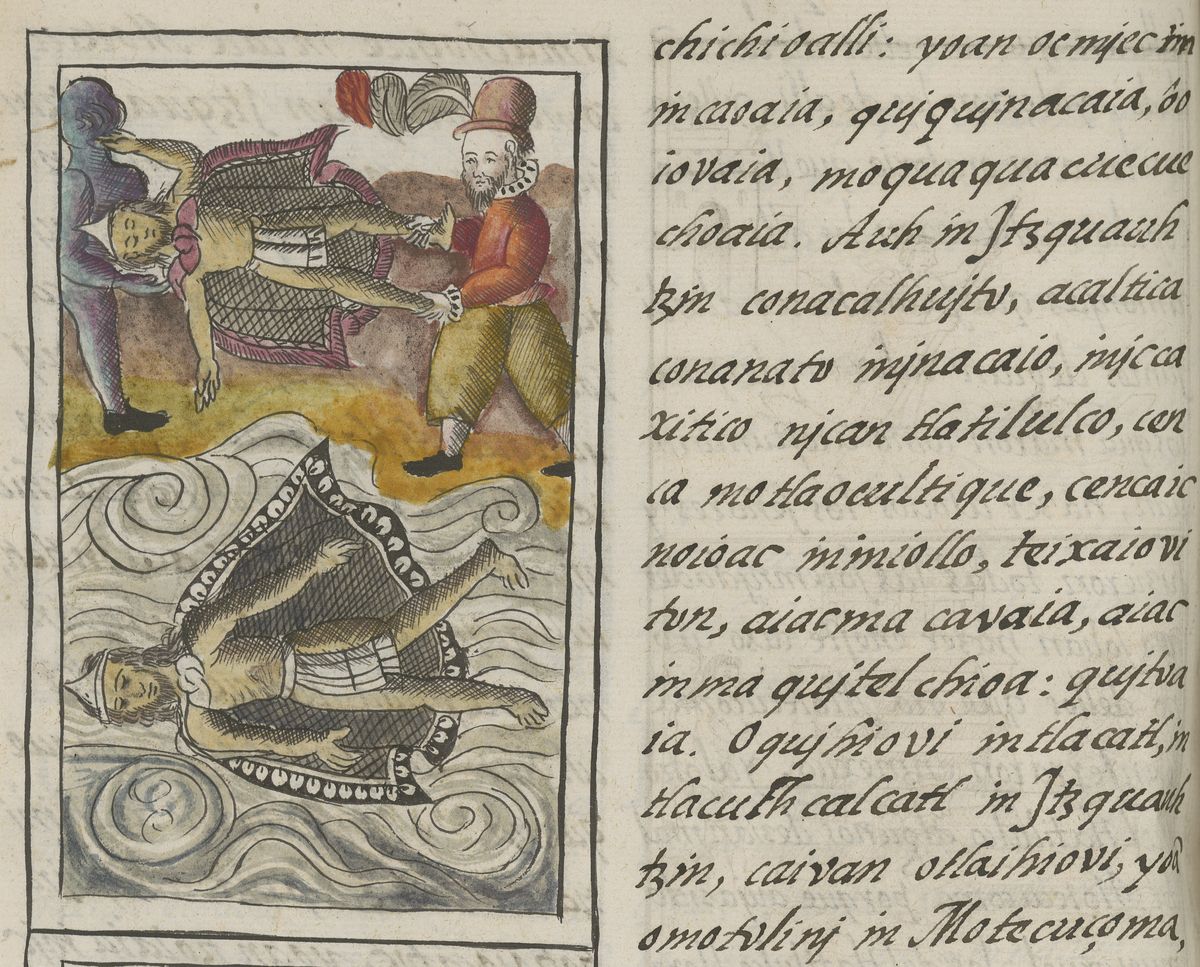 chichioalli: yoan oc mjec tzin
in caoaia, qujqujnacaia, oo
iovaia, moquaquacuecue
choaia. Auh in Jtzquauh
tzin conacalhujto, acaltica
conanato injnacaio, injc ca
xitico njcan tlatilulco, cen
ca motlaocultique, cencaic
noioac inmiollo, teixaiovi
ton, aiac ma cavaia, aiac
inma qujtelchioa: qujtva
ia. Oqujhiovi intlacatl, in
tlacuchcalcatl in Jtzquauh
tzin, caivan ollaihiovi, yoã
omotolinj in Motecuçoma,